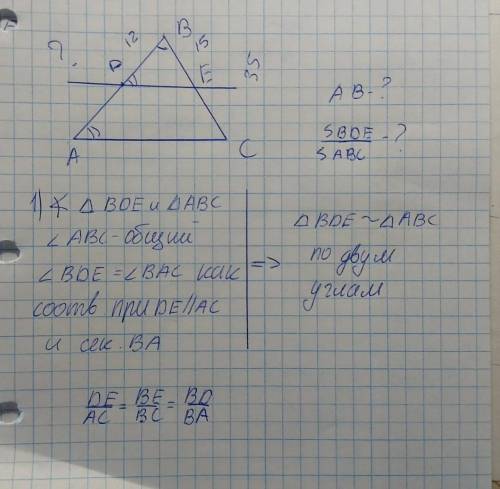 ?.
12
B
15
D
E
35
A
C
AB-?
SBDE
SABC
-?
1) ∢ △BDE и △ABC
∠ABC-общий
∠BDE=∠BAC как
соотв при DE||AC
и сек. BA
=>
△BDE ~ △ABC
по двум
углам
DE/AC = BE/BC = BD/BA